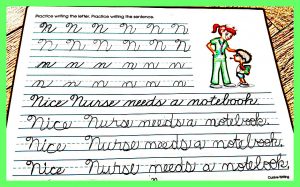 Practice writing the letter. Practice writing the sentence.
n n n n n n n
n n n n n n n
n n n n n n
n n n n n n
Nice Nurse needs a notebook.
Nice Nurse needs a notebook.
Nice Nurse needs a notebook.
Nice Nurse needs a notebook.
Cursive Writing